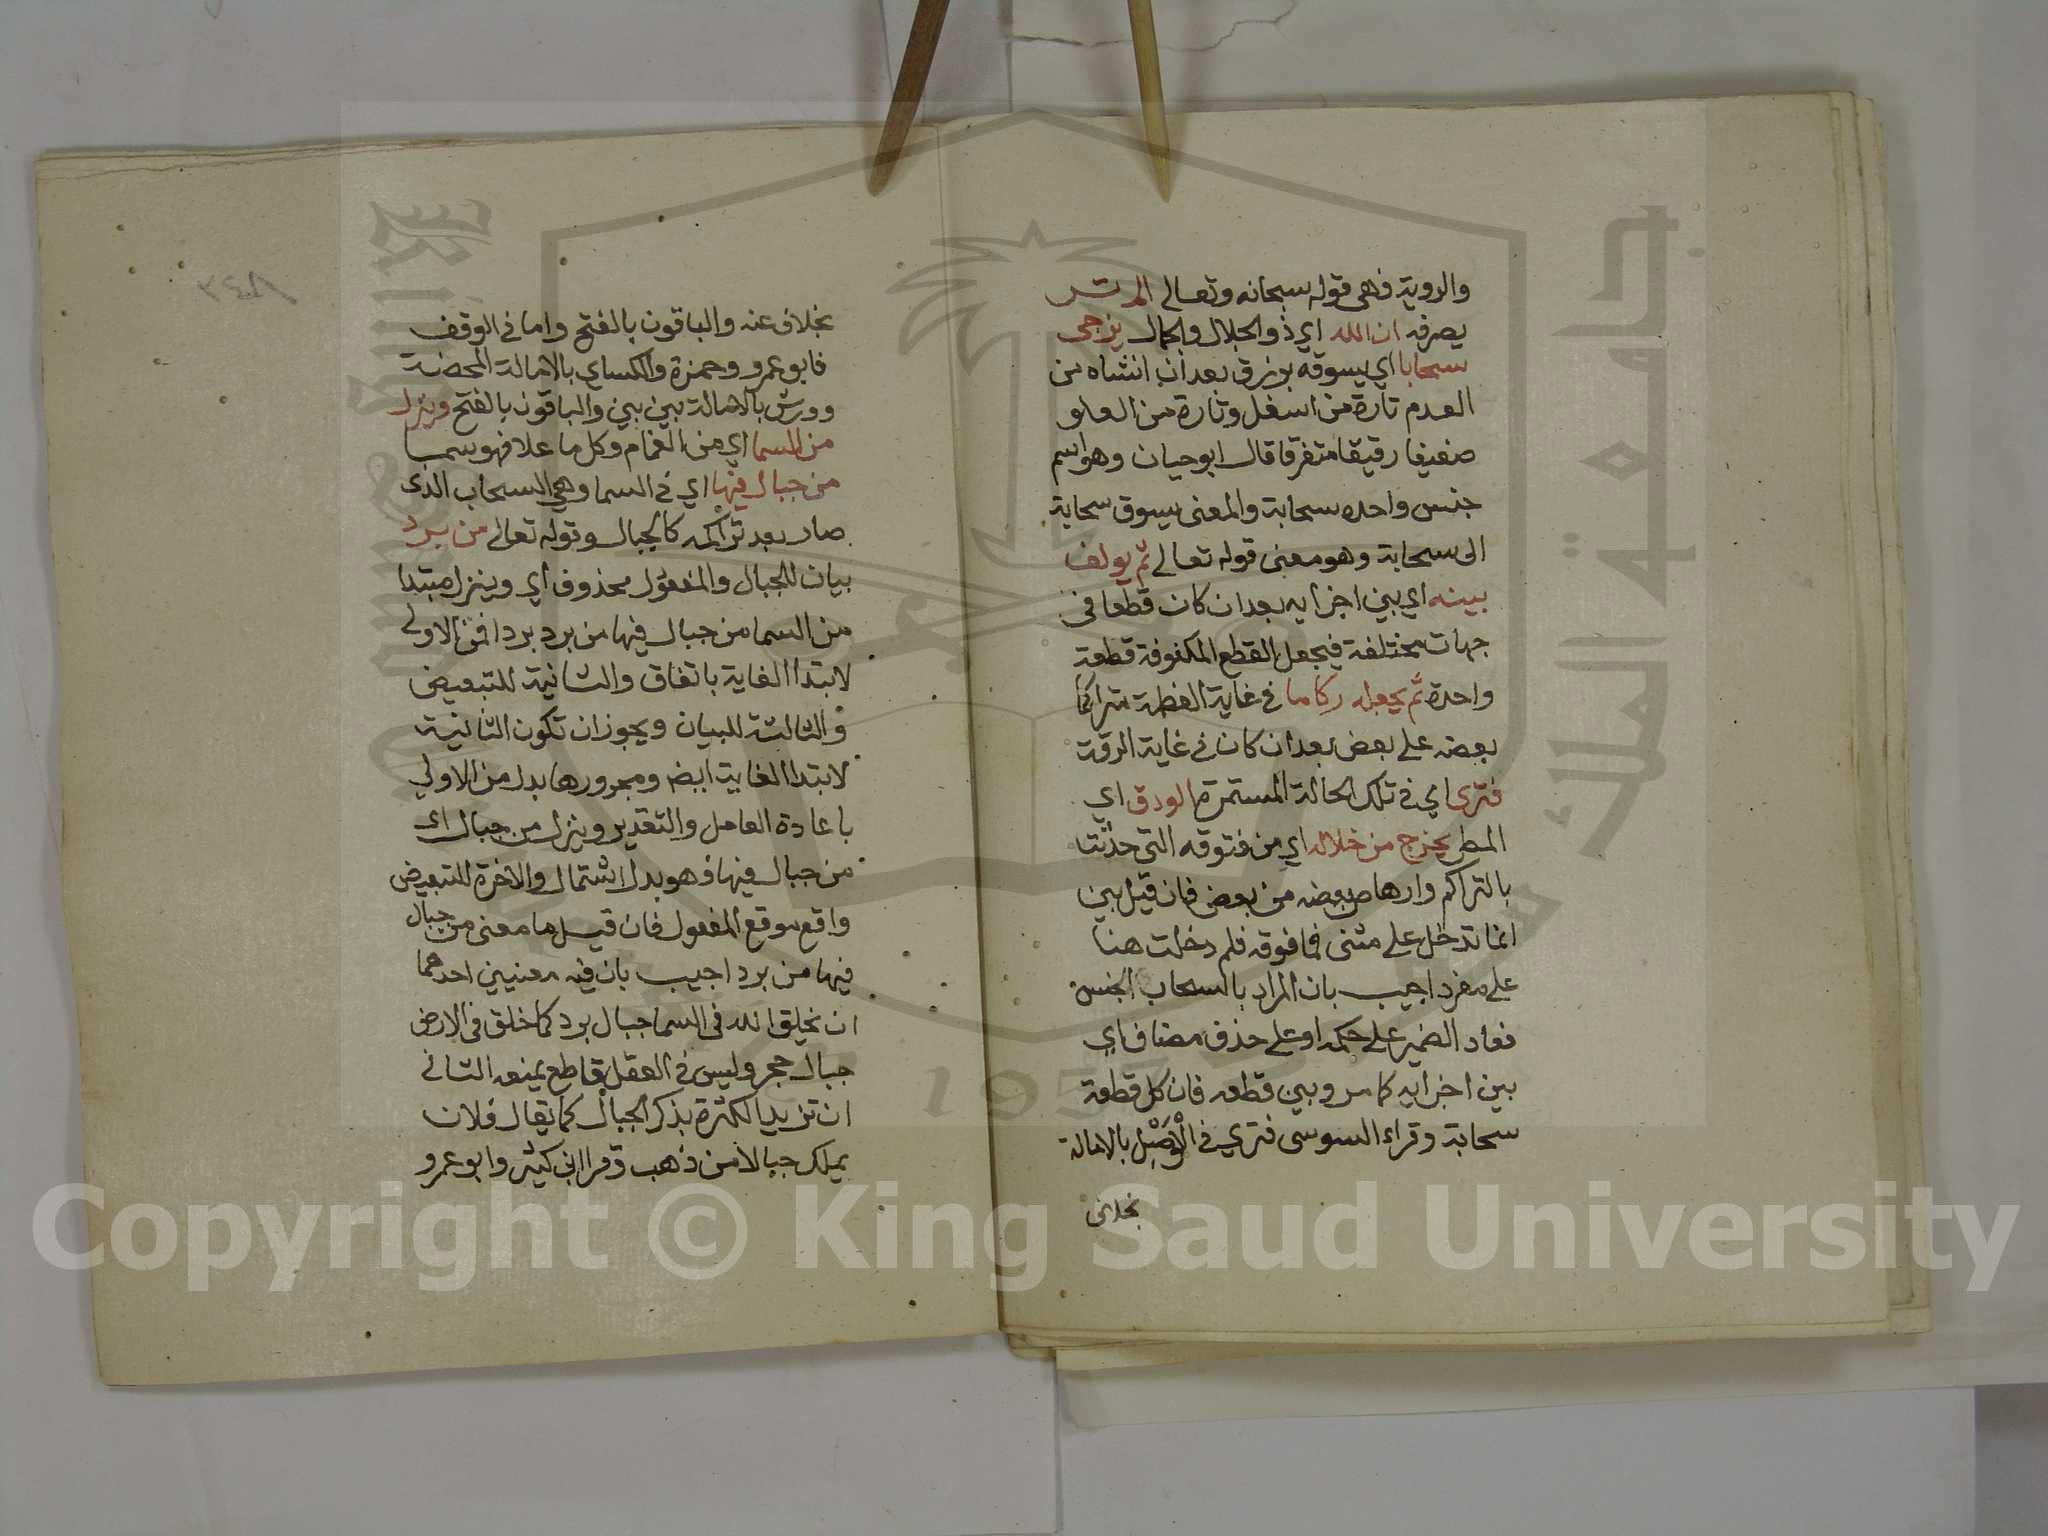 والروية فهى قوله سبحانه وتعالى الم تر
يصرفه ان الله اي ذو الجلال والجمال يزجى
سحابا اي يسوقه برفق بعد أن انشاه من
العدم تارة من اسفل وتارة من العلو
ضعيفا رقيقا متفرقا قال ابوحيان وهو اسم
جنس واحده سحابة والمعنى يسوق سحابة
الى سحابة وهو معنى قوله تعالى ثم يولف
بينه اي بين اجزايه بعد ان كان قطعا في
جهات مختلفة فيجعل القطع المكفوفة قطعة
واحدة ثم يجعله ركاما في غاية العظمة متراكما
بعضه على بعض بعد ان كان في غاية الرقة
فترى اي في تلك الحالة المستمرة الودق اي
المطر يخرج من خلاله اي من فتوقه التي حدثت
بالتراكم وارهاص بعضه من بعض فان قيل بين
انما تدخل على مثنى فما فوقه فلم دخلت هنا
على مفرد اجيب بان المراد بالسحاب الجنس
فعاد الضمير على حكمه او على حذف مضاف اي
بين اجزايه كما مر وبين قطعه فان كل قطعة
سحابة وقراء السوسى فتري في الْوَصْل بالامالة
بخلاف
بخلاف عنه والباقون بالفتح واما في الوقف
فابو عمرو وحمزة والكساي بالامالة المحضة
وورش بالامالة بين بين والباقون بالفتح وينزل
من السما اي من الغمام وكل ما علا فهو سما
من جبال فيها اي في السما وهي السحاب الذى
صار بعد تراكمه كالجبال وقوله تعالى من برد
بيان للجبال والمفعول محذوف اي وينزل مبتدا
من السما من جبال فيها من برد بردا فمن الاولى
لابتدا الغاية باتفاق والثانية للتبعيض
والثالثة للبيان ويجوز ان تكون الثانية
لابتدا الغاية ايضا ومجرورها بدل من الاولي
باعادة العامل والتقدير وينزل من جبال اي
من جبال فيها فهو بدل اشتمال والاخرة للتبعيض
واقع موقع المفعول فان قيل ما معنى من جبال
فيها من برد اجيب بان فيه معنيين احدهما
ان يخلق الله في السما جبال برد كما خلق في الارض
جبال حجر وليس في العقل قاطع يمنعه الثاني
ان تريد الكثرة بذكر الجبال كما يقال فلان
يملك جبالا من ذهب وقرا ابن كثير وابو عمرو
Copyright © King Saud University
جامعة الملك سعود
King Saud University
1957